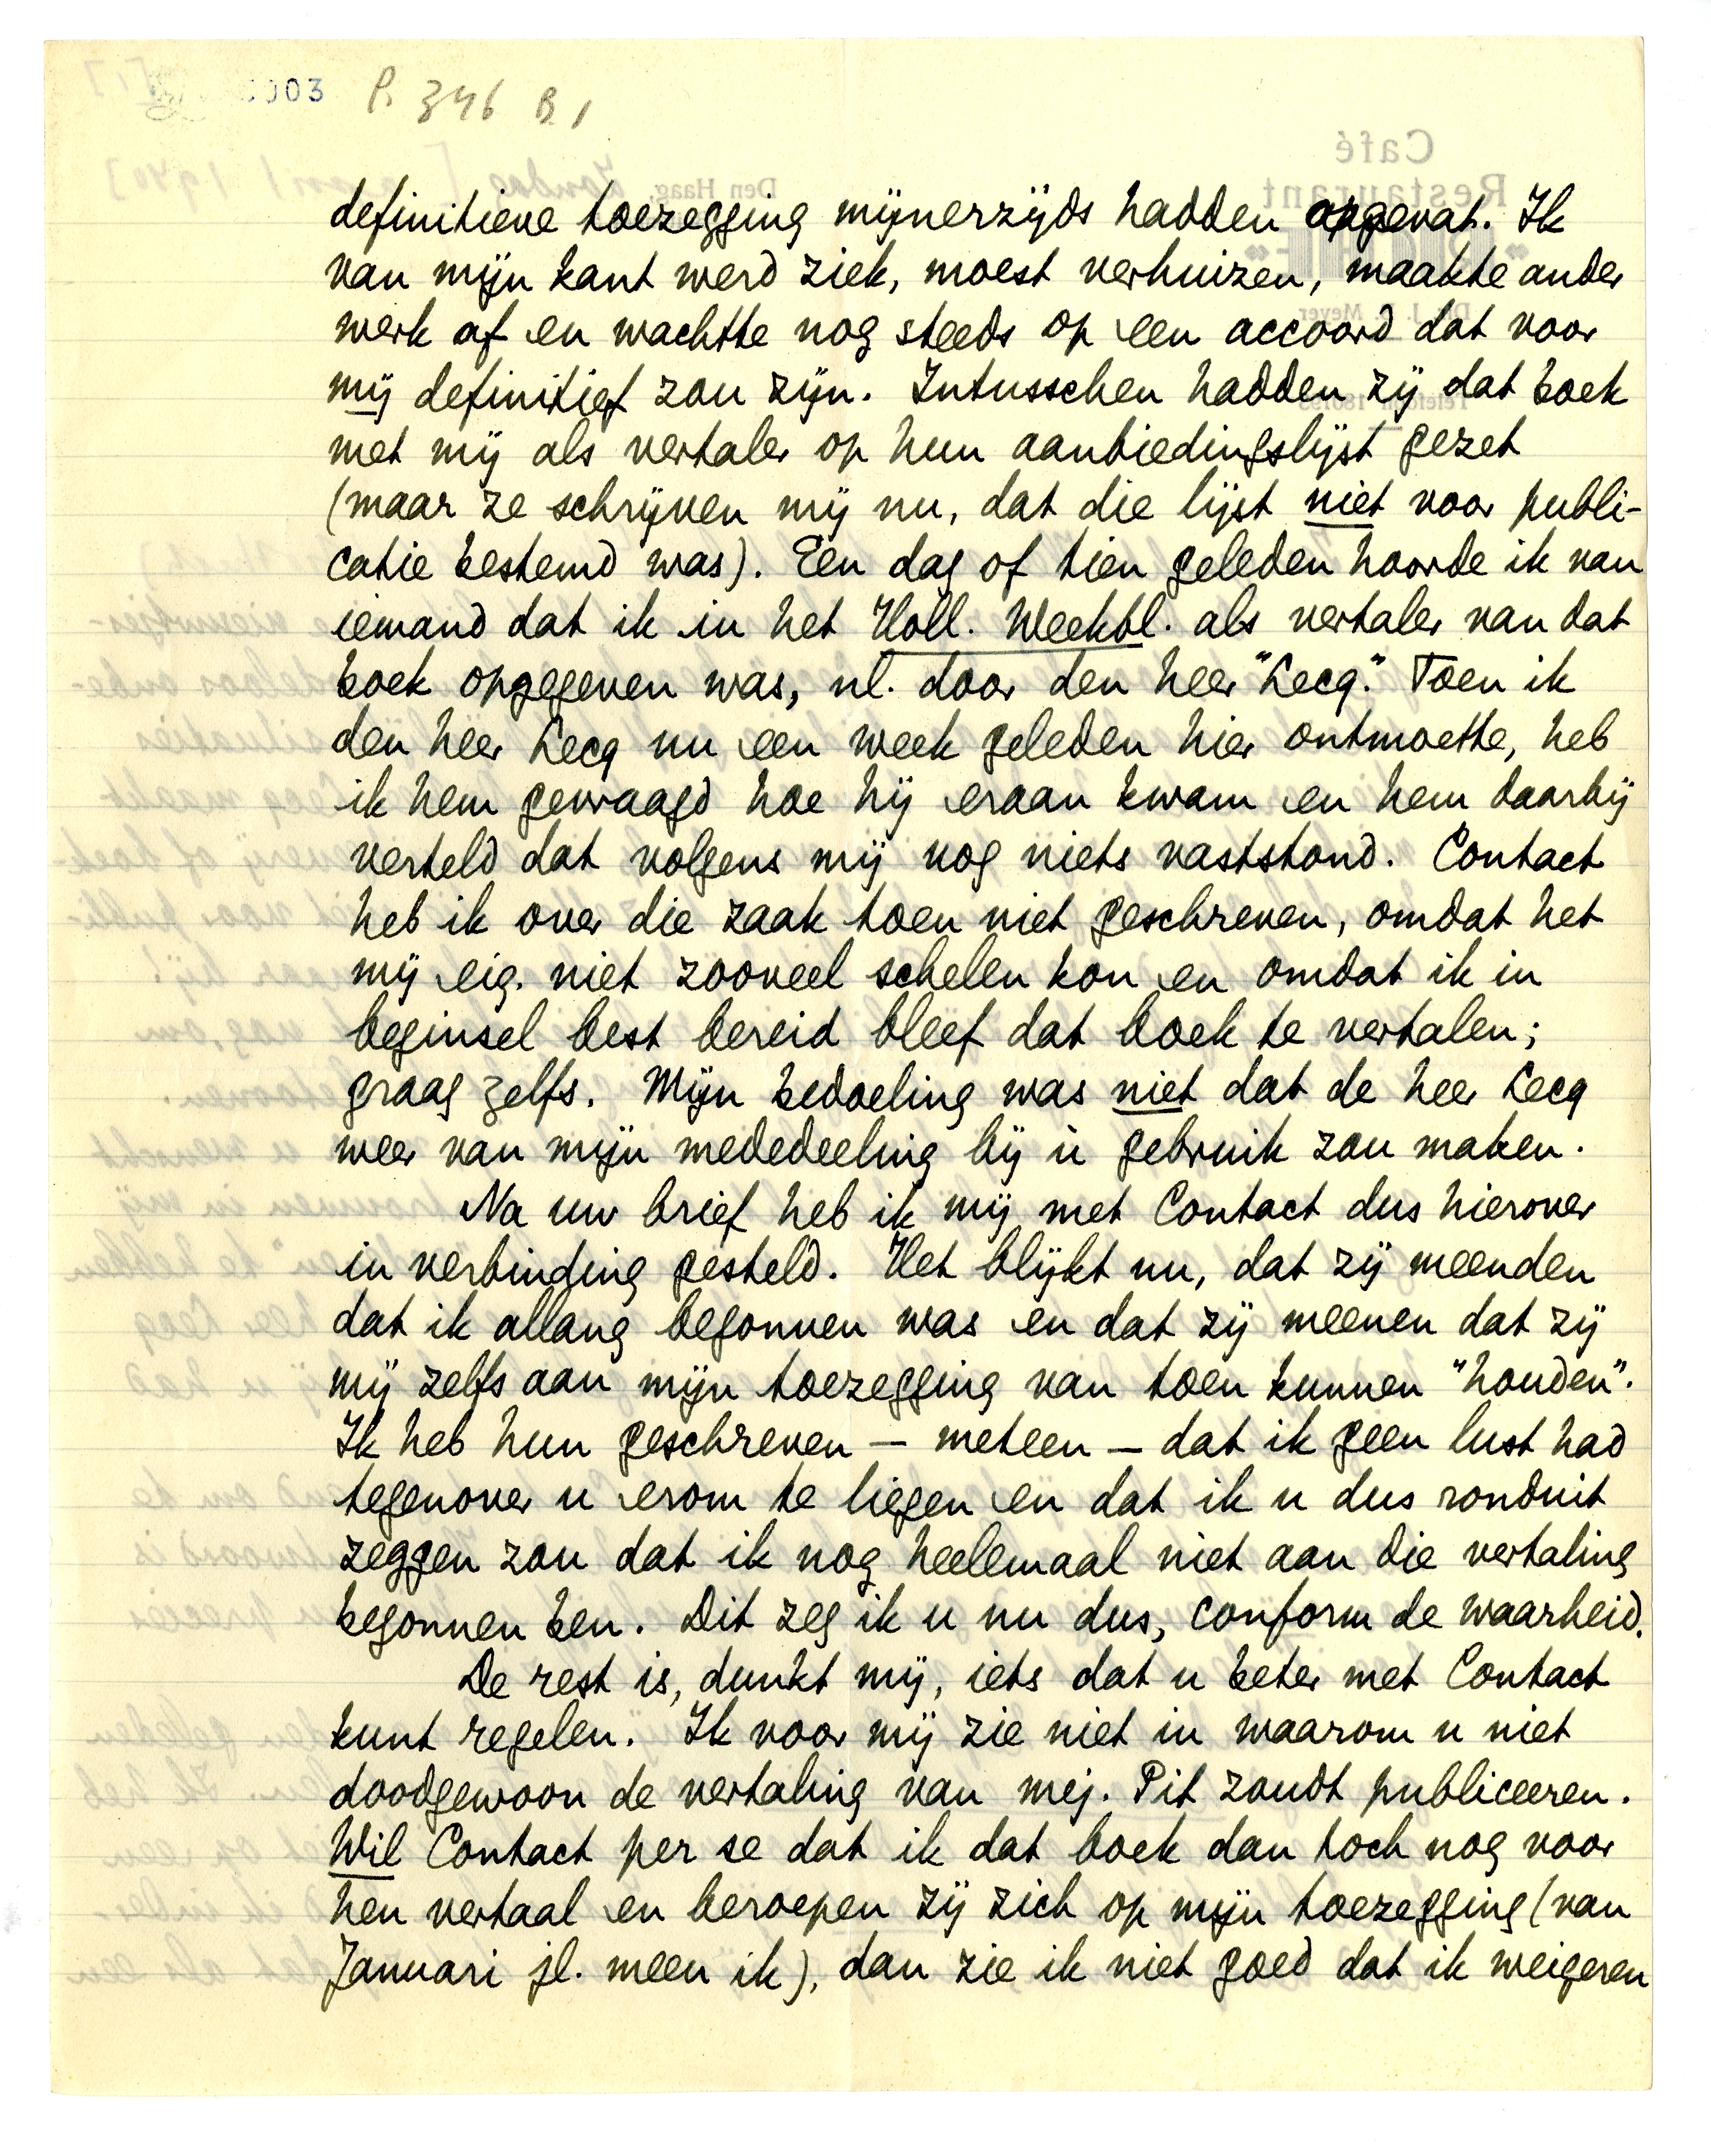 0003 P. 346 B 1
definitieve toezegging mijnerzijds hadden opgevat. Ik
van mijn kant werd ziek, moest verhuizen, maakte ander
werk af en wachtte nog steeds op een accoord dat voor
mij definitief zou zijn. Intusschen hadden zij dat boek
met mij als vertaler op hun aanbiedingslijst gezet
(maar ze schrijven mij nu, dat die lijst niet voor publi-
catie bestemd was). Een dag of tien geleden hoorde ik van
iemand dat ik in het Holl. Weekbl. als vertaler van dat
boek opgegeven was, nl. door den heer "Lecq." Toen ik
den heer Lecq nu een week geleden hier ontmoette, heb
ik hem gevraagd hoe hij eraan kwam en hem daarbij
verteld dat volgens mij nog niets vaststond. Contact
heb ik over die zaak toen niet geschreven, omdat het
mij eig. niet zooveel schelen kon en omdat ik in
beginsel best bereid bleef dat boek te vertalen;
graag zelfs. Mijn bedoeling was niet dat de heer Lecq
weer van mijn mededeeling bij u gebruik zou maken.
Na uw brief heb ik mij met Contact dus hierover
in verbinding gesteld. Het blijkt nu, dat zij meenden
dat ik allang begonnen was en dat zij meenen dat zij
mij zelfs aan mijn toezegging van toen kunnen "houden".
Ik heb hun geschreven – meteen – dat ik geen lust had
tegenover u erom te liegen en dat ik u dus ronduit
zeggen zou dat ik nog heelemaal niet aan die vertaling
begonnen ben. Dit zeg ik u nu dus, conform de waarheid.
De rest is, dunkt mij, iets dat u beter met Contact
kunt regelen. Ik voor mij zie niet in waarom u niet
doodgewoon de vertaling van mej. Pit zoudt publiceeren.
Wil Contact per se dat ik dat boek dan toch nog voor
hen vertaal en beroepen zij zich op mijn toezegging (van
Januari jl. meen ik), dan zie ik niet goed dat ik weigeren